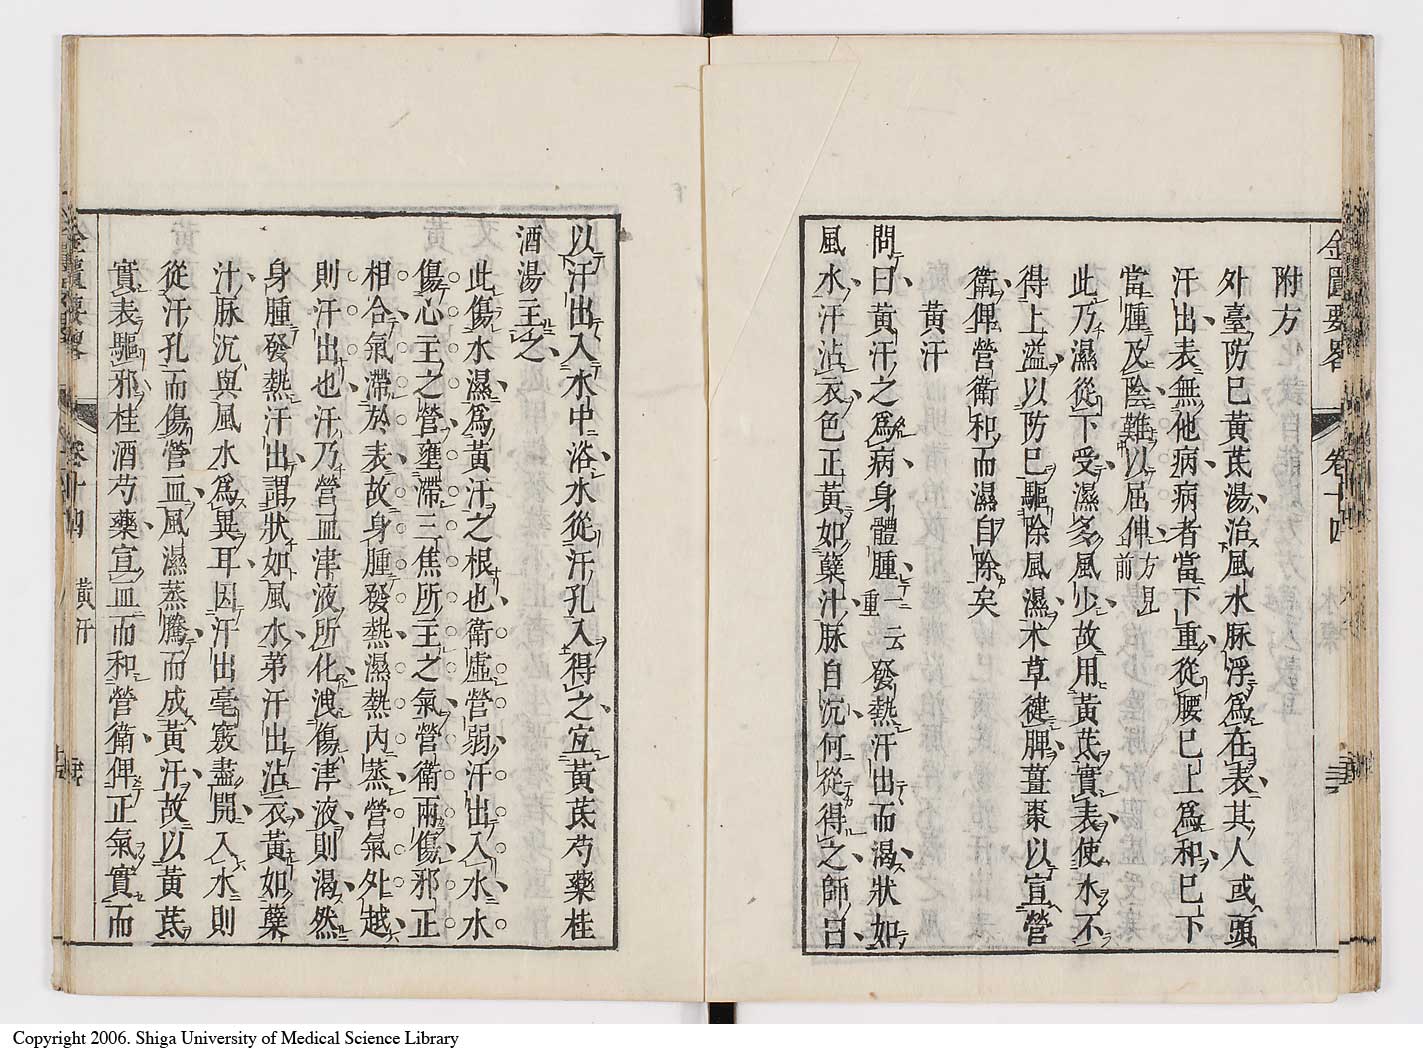 金匱要畧 卷十四
附方
外臺防已黃茋湯治風水脉浮爲在表其人或頭
汗出表無他病病者當下重從腰已上爲和已下
當腫及陰難以屈伸方見上前
此乃濕從下受濕多風少故用黃茋實表使水不
得上溢以防已驅除風濕术草健脾薑棗以宣營
衛俾營衛和而濕自除矣
黃汗
問曰黃汗之爲病身體腫一云重發熱汗出而渴狀如
風水汗沾衣色正黃如蘗汁脉自沉何從得之師曰
以汗出入水中浴水從汗孔入得之宜黃茋芍藥桂
酒湯主之
此傷水濕爲黃汗之根也衛虛營弱汗出入水水
傷心主之營壅滯三焦所主之氣營衛兩傷邪正
相合氣滯於表故身腫發熱濕熱內蒸營氣外越
則汗出也汗乃營血津液所化洩傷津液則渴然
身腫發熱汗出謂狀如風水第汗出沾衣黃如蘗
汁脉沉與風水爲異耳因汗出毫竅盡開入水則
從汗孔而傷營血風濕蒸騰而成黃汗故以黃茋
實表驅邪桂酒芍藥宣血而和營衛俾正氣實而
金匱要畧 卷十四 黃汗
Copyright 2006. Shiga University of Medical Science Library